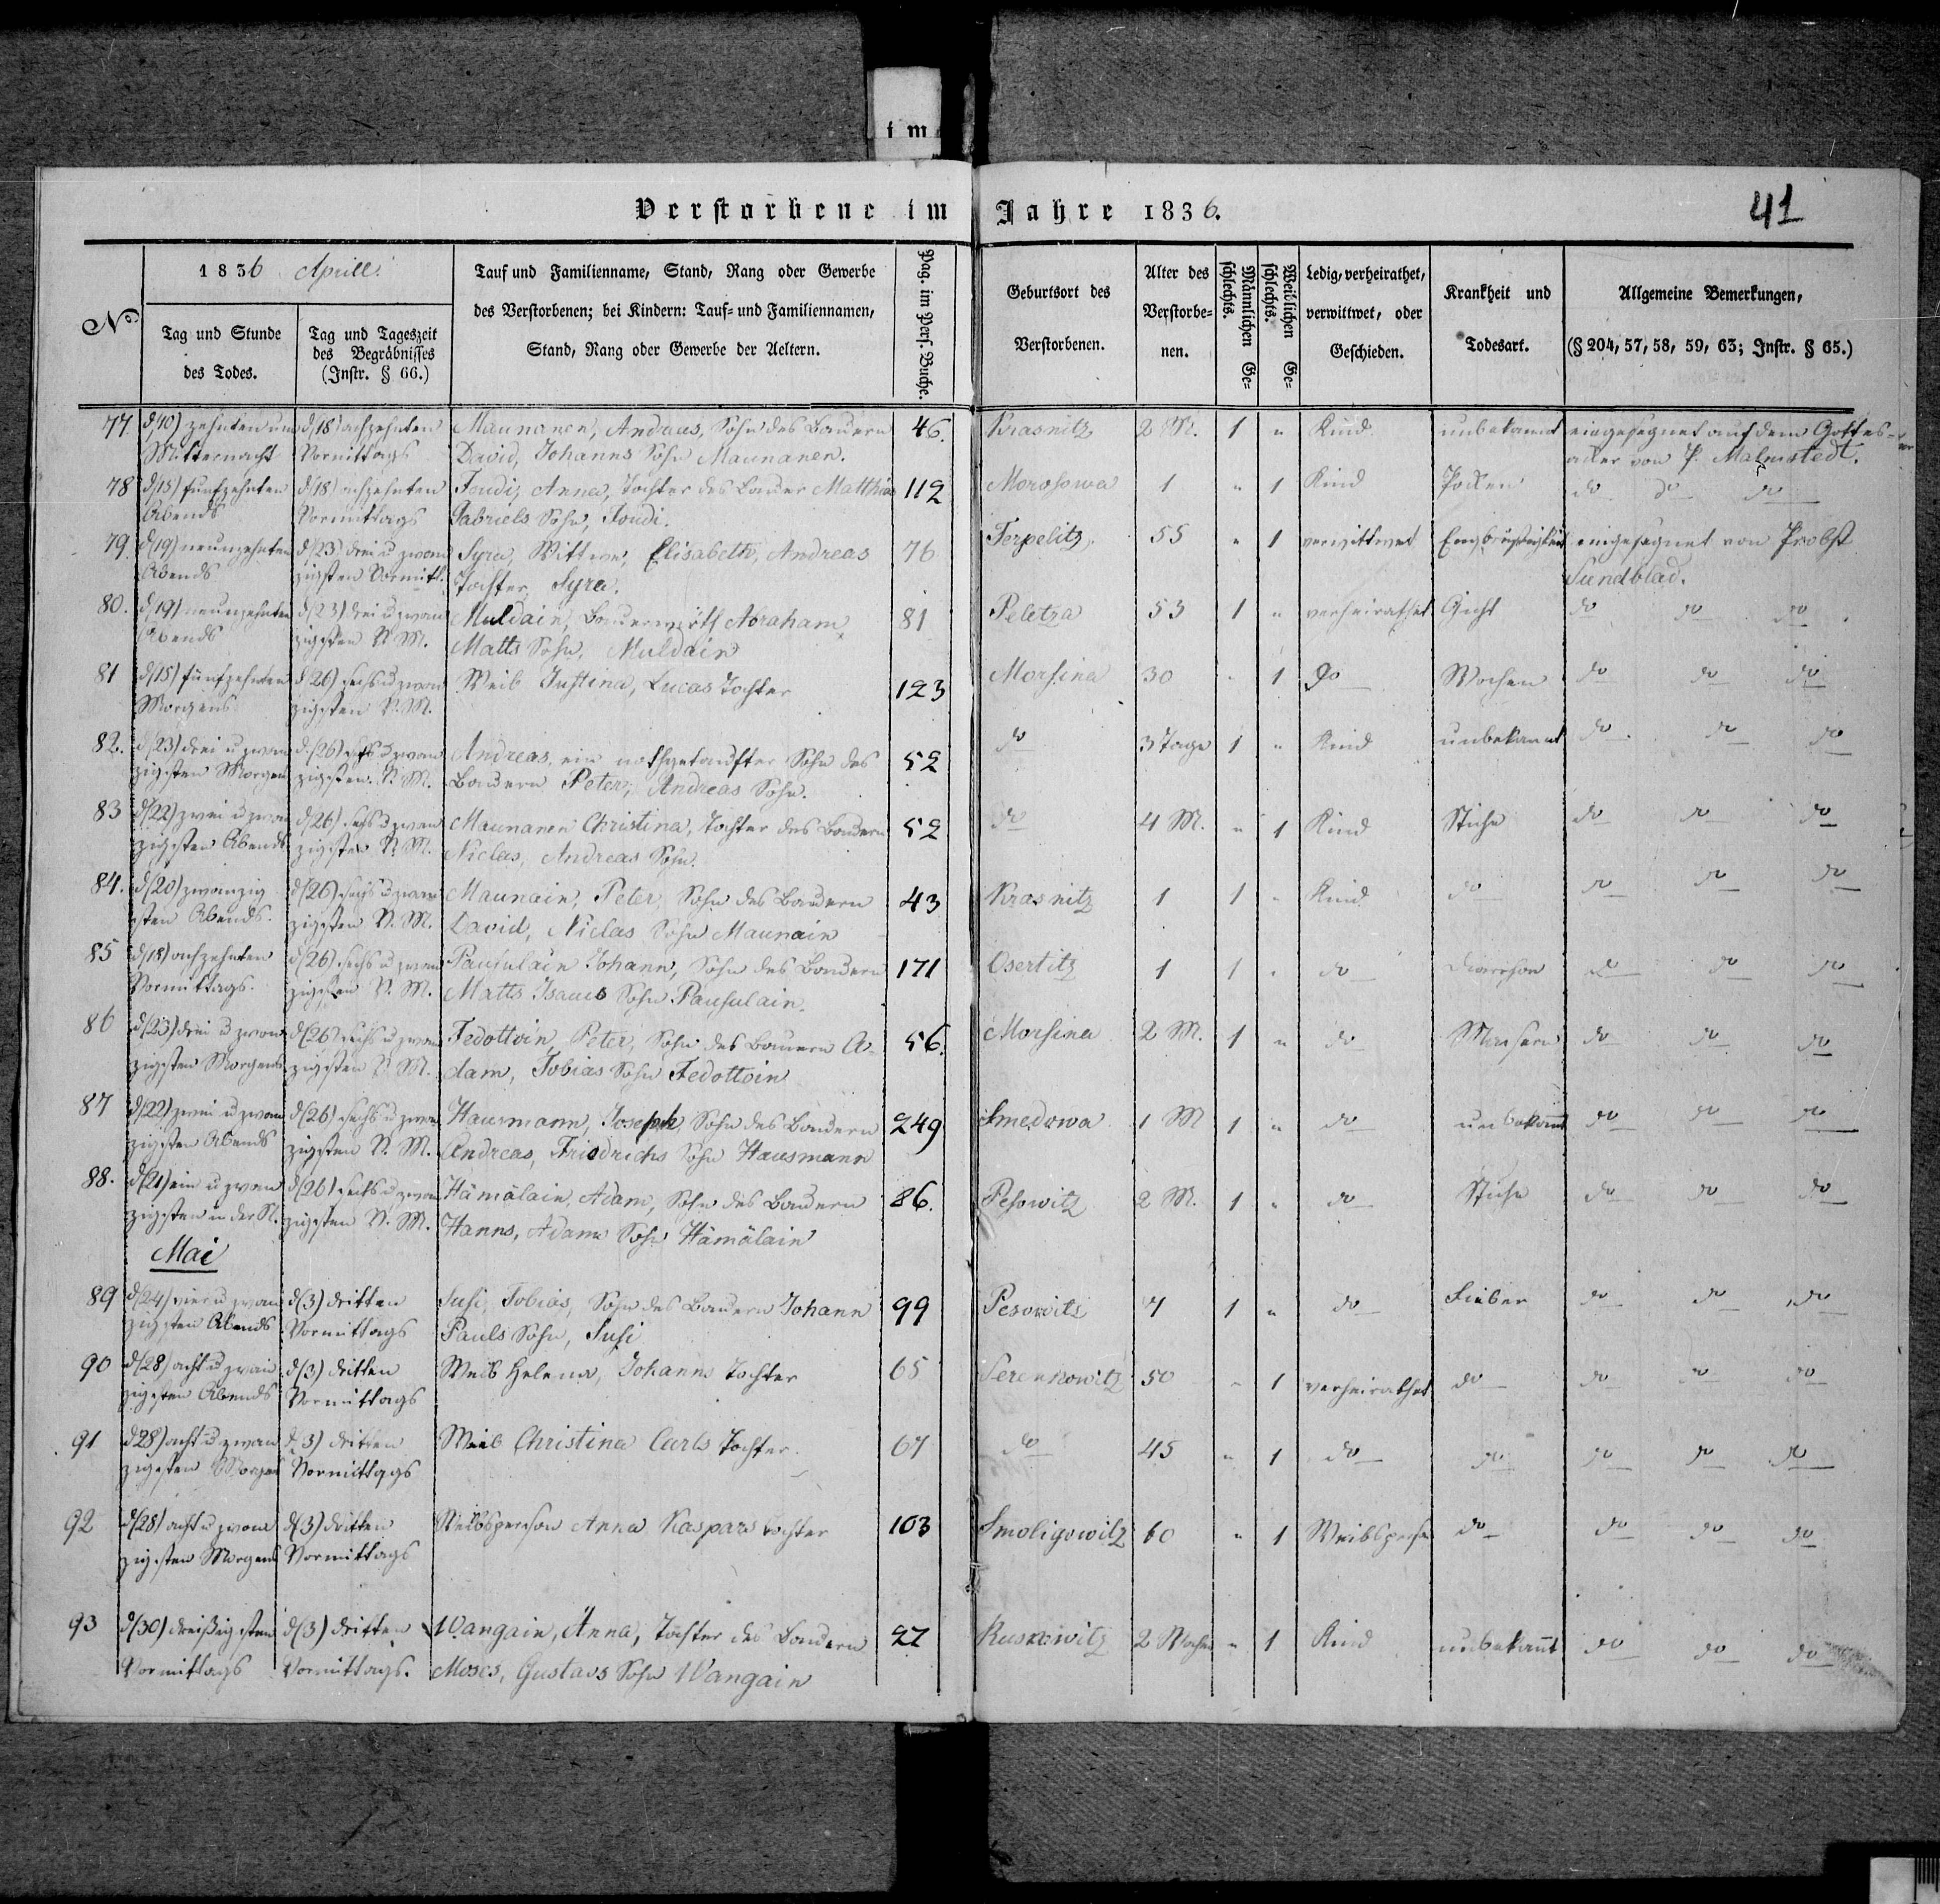 im
Verstorbene im Jahre 1836.
41
No
1836 Aprill.
Tag und Stunde des Todes.
Tag und Tageszeit des Begräbnisses (Instr. § 66.)
Tauf und Familienname, Stand, Rang oder Gewerbe
des Verstorbenen; bei Kindern: Tauf- und Familiennamen,
Stand, Rang oder Gewerbe der Aeltern.
Pag. im Pers. Buche.
Geburtsort des Verstorbenen.
Alter des Verstorbenen.
Männlichen Geschlechts.
Weiblichen Geschlechts.
Ledig, verheirathet, verwittwet, oder Geschieden.
Krankheit und Todesart.
Allgemeine Bemerkungen,
(§ 204, 57, 58, 59, 63; Instr. § 65.)
77 d(10) zehnten um d(18) achzehnten Maunanen, Andreas, Sohn des Bauern 46. Krasnitz 2 M. 1 " Kind unbekannt eingesegnet auf dem Gottes-
Mitternacht Vormittags David, Johanns Sohn Maunanen. acker von P. Malmstedt.
78 d(15) fünfzehnten d(18) achzehnten Joudi, Anna, Tochter des Bauer Matthias 112 Morosowa 1 " 1 Kind Pocken do do do
Abends Vormittags Gabriels Sohn, Joudi.
79 d(19) neunzehnten d(23) drei u zwan Syra, Wittwe, Elisabeth, Andreas 76 Terpelitz 55 " 1 verwittwet Engbrüstigkeit eingesegnet von Probst
Abends zigsten Vormitt. Tochter, Syra. Sundblad.
80. d(19) neunzehnten d(23) drei u zwan Muldain, Bauerwirth Abraham 81 Peletza 53 1 " verheirathet Gicht do do do
Abends zigsten V. M. Matts Sohn, Muldain
81 d(15) fünfzehnten d(26) sechs u zwan Weib Justina, Lucas Tochter 123 Morsina 30 " 1 do Wochen do do do
Morgens zigsten V. M.
82. d(23) drei u zwan d(26) sechs u zwan Andreas, ein nothgetaufter Sohn des 52 do 3 Tage 1 " Kind unbekannt do do do
zigsten Morgens zigsten V. M. Bauern Peter, Andreas Sohn.
83 d(22) zwei u zwan d(26) sechs u zwan Maunanen Christina, Tochter des Bauern 52 do 4 M. " 1 Kind Stiche do do do
zigsten Abends zigsten V. M. Niclas, Andreas Sohn.
84. d(20) zwanzig d(26) sechs u zwan Maunain, Peter, Sohn des Bauern 43 Krasnitz 1 1 " Kind do do do do
sten Abends. zigsten V. M. David, Niclas Sohn Maunain
85 d(18) achzehnten d(26) sechs u zwan Pausulain Johann, Sohn des Bauern 171 Osertitz 1 1 " do do do do
Vormittags. zigsten V. M. Matts Isaacs Sohn Pausulain.
86 d(23) drei u zwan d(26) sechs u zwan Fedottoin, Peter, Sohn des Bauern A- 56. Morsina 2 M. 1 " do Masern do do do
zigsten Morgens zigsten V. M. dam, Tobias Sohn Fedottoin
87 d(22) zwei u zwan d(26) sechs u zwan Hausmann, Joseph, Sohn des Bauern 249 Smedowa 1 M 1 " do unbekannt do do do
zigsten Abends zigsten V. M. Andreas, Friedrichs Sohn Hausmann
88. d(21) ein u zwan d(26) sechs u zwan Hämäläin, Adam, Sohn des Bauern 86. Pesowitz 2 M. 1 " do Stiche do do do
zigsten in der N. zigsten V. M. Hanns, Adams Sohn Hämäläin
Mai
89 d(24) vier u zwan d(3) dritten Susi, Tobias, Sohn des Bauern Johann 99 Pesowitz 7 1 " do Fieber do do do
zigsten Abends Vormittags Pauls Sohn, Susi
90 d(28) acht u zwan d(3) dritten Weib Helena, Johanns Tochter 65 Serenkowitz 50 " 1 verheirathet do do do do
zigsten Abends Vormittags
91 d(28) acht u zwan d(3) dritten Weib Christina Carls Tochter. 67 do 45 " 1 do do do do do
zigsten Morgens Vormittags
92 d(28) acht u zwan d(3) dritten Weibsperson Anna Kaspars Tochter 103 Smoligowitz 60 " 1 Weibsperson do do do do
zigsten Morgens Vormittags
93 d(30) dreißigsten d(3) dritten Wangain, Anna, Tochter des Bauern 27 Ruskowitz 2 Wochen " 1 Kind unbekannt do do do
Vormittags Vormittags. Moses, Gustavs Sohn Wangain